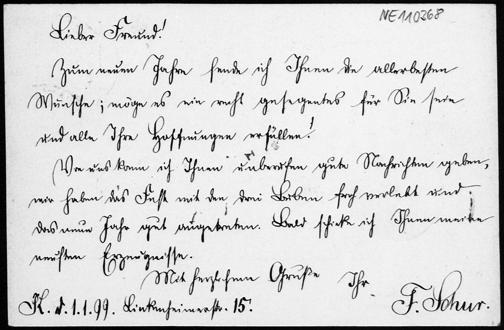 NE110268
Lieber Freund!
Zum neuen Jahre sende ich Ihnen die allerbesten
Wünsche; möge es ein recht gesegnetes für Sie sein
und alle Ihre Hoffnungen erfüllen!
Von uns kann ich Ihnen unberufen gute Nachrichten geben,
wir haben das Fest mit den drei Buben froh verlebt und
das neue Jahr gut angetreten. Bald schicke ich Ihnen meine
neusten Erzeugnisse.
Mit herzlichem Gruße Ihr
K. d. 1.1.99. Linkenheimerstr. 15. F. Schur.